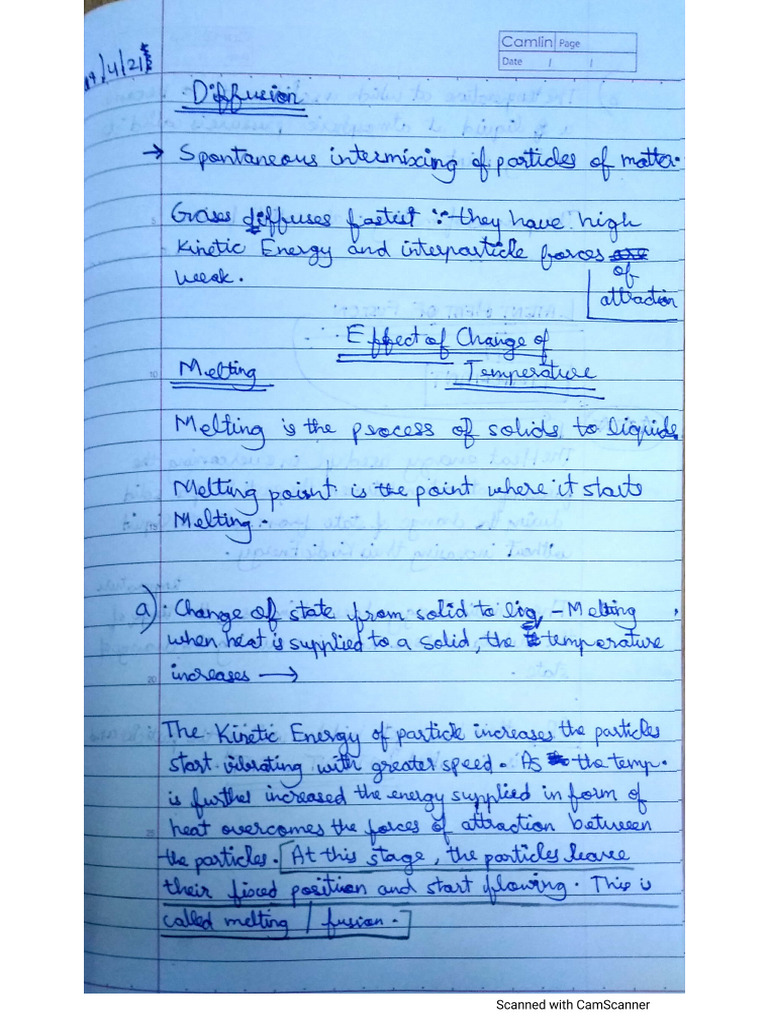 Camlin Page
Date / /
19/4/21
Diffusion
→ Spontaneous intermixing of particles of matter.
Gases diffuses fastest ∵ they have high
Kinetic Energy and interparticle forces of attraction
weak.
Effect of Change of
Melting Temperature
Melting is the process of solids to liquids.
Melting point is the point where it starts
Melting.
a) Change of state from solid to liq - Melting
when heat is supplied to a solid, the temperature
increases →
The Kinetic Energy of particle increases the particles
start vibrating with greater speed. As the temp.
is further increased the energy supplied in form of
heat overcomes the forces of attraction between
the particles. [At this stage, the particles leave
their fixed position and start flowing. This is
called melting / fusion.]
Scanned with CamScanner